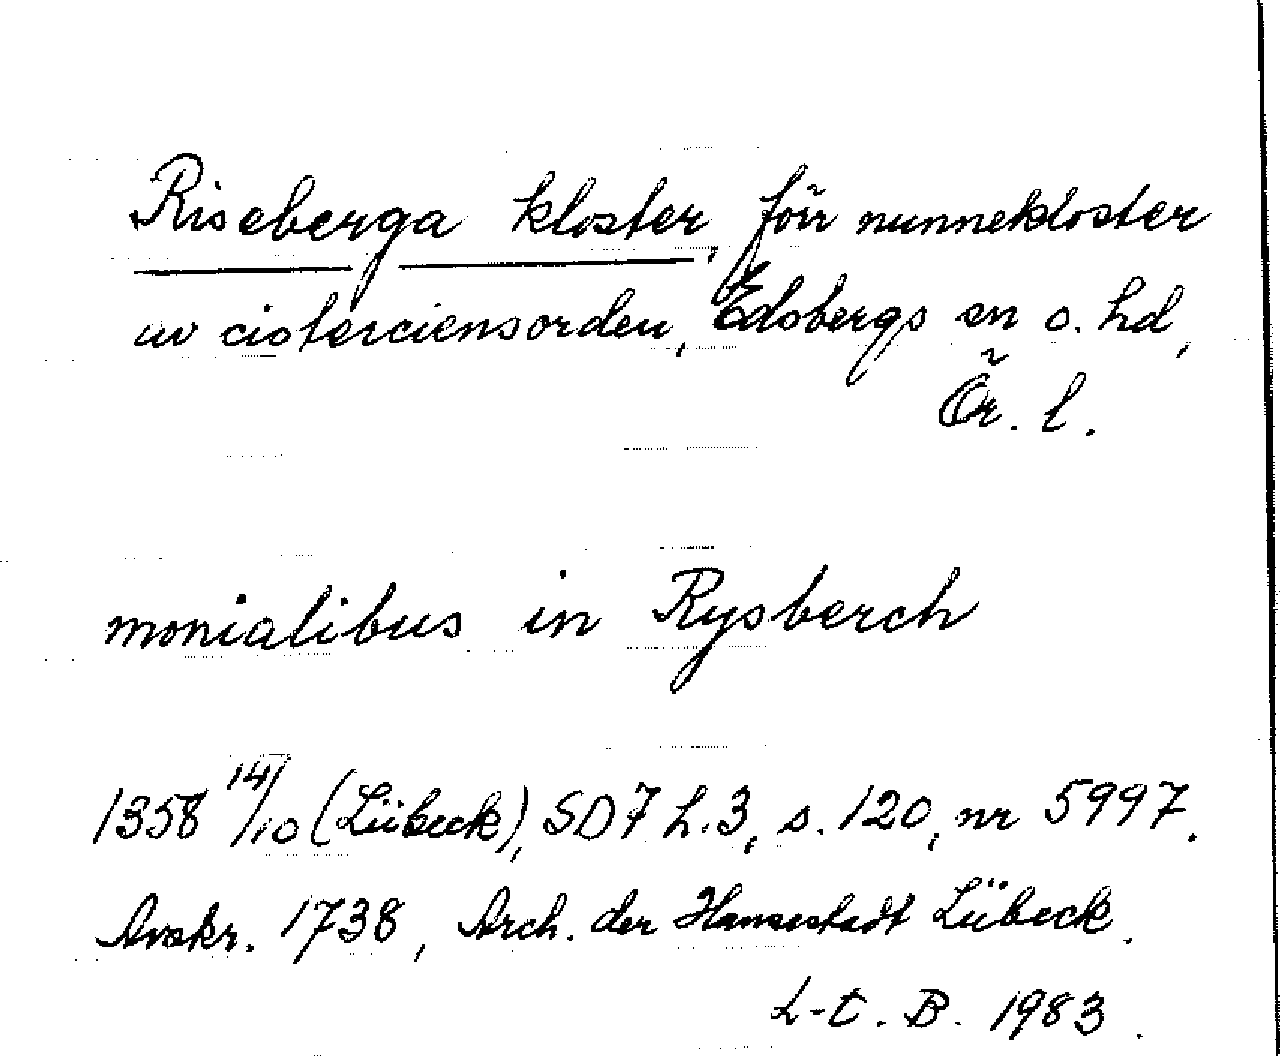 Riseberga kloster, förr nunnekloster
av cisterciensorden, Edsbergs sn o. hd,
Ör. l.
monialibus in Rysberch
1358 14/10 (Lübeck), SD 7 h. 3, s. 120, nr 5997.
Avskr. 1738, Arch. der Hansestadt Lübeck.
L-E. B. 1983.